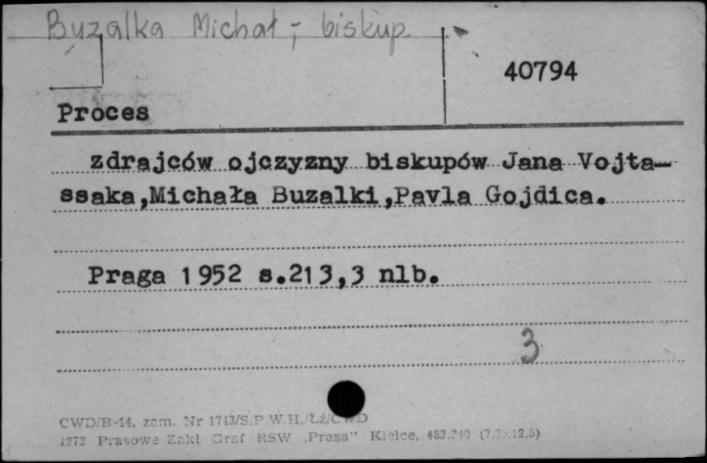 Buzalka Michał, - biskup.
40794
Proces
zdrajców ojczyzny biskupów Jana Vojta-
ssaka,Michała Buzalki,Pavla Gojdica.
Praga 1952 s.213,3 nlb.
3
CWD/B-14, zam. Nr 1743/S.P.W.H./Łż/CWD
1272 Prasowe Zakł Graf RSW „Prasa" Kielce, 483.240 (7.5×12.5)